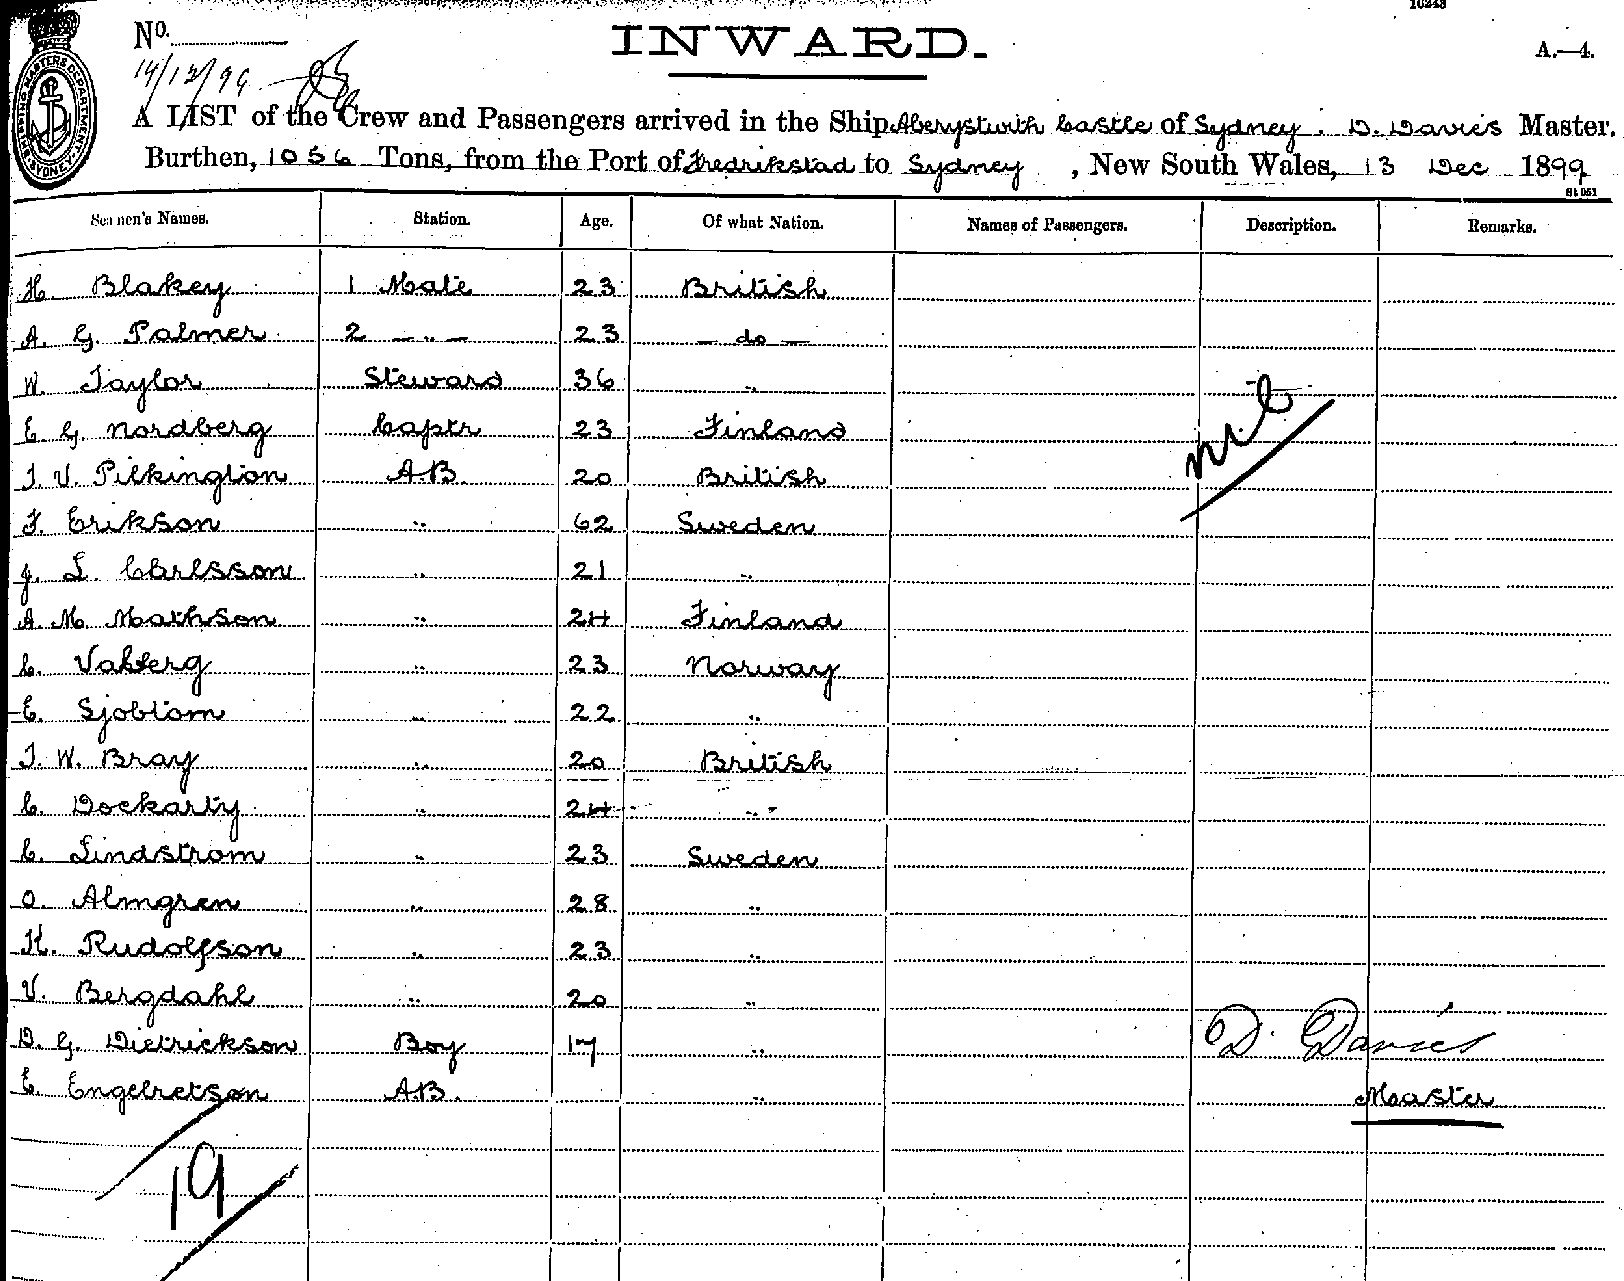 10248
No.
INWARD.
A.—4.
14/12/99
A LIST of the Crew and Passengers arrived in the Ship Aberystwith Castle of Sydney. D. Davies Master.
Burthen, 1056 Tons, from the Port of Fredrikstad to Sydney, New South Wales, 13 Dec 1899
St 051
Seamen's Names. Station. Age. Of what Nation. Names of Passengers. Description. Remarks.
H. Blakey 1 Mate 23 British
A. G. Palmer 2 — " — 23 — do —
W. Taylor Steward 36 "
E G. Nordberg Carptr 23 Finland
nil
T. V. Pilkington A.B. 20 British
F. Erikson " 62 Sweden
J. L. Carlsson " 21 "
A. M. Mathson " 24 Finland
C. Valberg " 23 Norway
E. Sjoblom " 22 "
T. W. Bray " 20 British
C. Dockarty " 24 "
C. Lindstrom " 23 Sweden
O. Almgren " 28 "
K. Rudolfson " 23 "
V. Bergdahl " 20 "
D. G. Dietrickson Boy 17 " D. Davies
E. Engelretson A.B. " Master
19